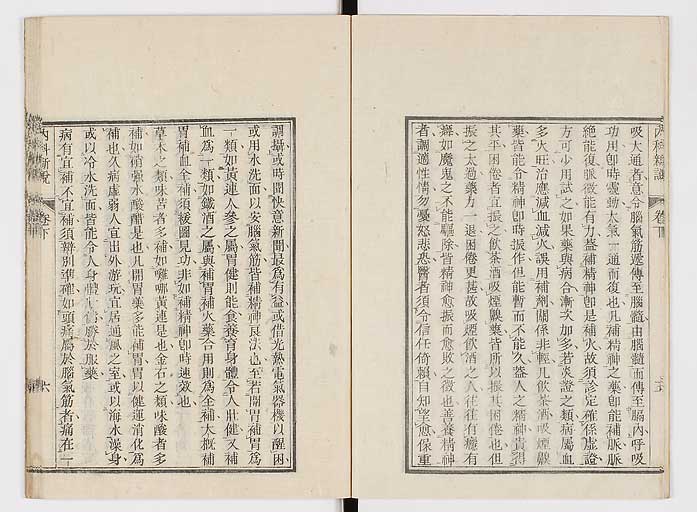 吸大通者意分腦氣筋遷傳至腦髓由腦髓而傳至膈內呼吸
功用卽時靈動大氣一通而復也凡補精神之藥卽能補脈
絕能復脈微能有力蓋補精神卽是補火故須診定確係虛證
方可少用試之如果藥與病合漸次加多若炎證之類病屬血
多火旺治應減血減火誤用補劑關係非輕凡飲茶酒吸煙鼴
藥皆能令精神卽時振作但能暫而不能久蓋人之精神貴得
其平困倦者宜振之飲茶酒吸煙鼴藥皆所以振其困倦也但
振之太過藥力一退困倦更甚故吸煙飲酒之人往往有癮有
舞如魔鬼之不能驅除皆精神愈振而愈敗之徵也善養精神
者調適性情勿憂怒悲恐醫者須令信任倚賴自知望愈保重
內科新說
卷下
調攝或時閱快意新聞最爲有益或借光熱電氣器機以醒困
或用水洗面以安腦氣筋皆補精神良法也至若開胃補胃爲
一類如黃連人參之屬胃健則能食養育身體令人壯健又補
血爲一類如鐵酒之屬與補胃補火藥合用則爲全補大概補
胃補血全補須緩圖見功非如補精神卽時速效也
草木之類味苦者多補如囉哪黃連是也金石之類味酸者多
補如硝强水酸醋是也凡開胃藥多能補胃胃以健運消化爲
補也久病虛弱人宜出外游玩宜居通風之室或以海水澡身
或以冷水洗面皆能令人身體
病有宜補不宜補須辨別準確如頭痛屬於腦氣筋者痛在一
內科新說
卷下
六